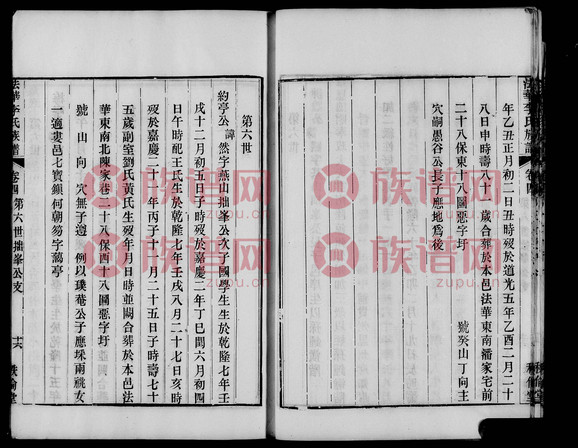 年乙丑正月初二日丑時歿於道光五年乙酉二月二十
八日申時壽八十 歲合葬於本邑法華東南潘家宅前
二十八保東十八圖惡字圩 號癸山丁向主
穴嗣愚谷公長子應地為後
第六世
約亭公諱 然字燕山拙峯公次子國學生生於乾隆七年壬
戌十二月初五日子時歿於嘉慶二年丁巳閏六月初四
日午時配王氏生於乾隆七年壬戌八月二十七日亥時
歿於嘉慶二十一年丙子十一月二十五日子時壽七十
五歲副室劉氏黃氏生歿年月日時並闕合葬於本邑法
華東南北陳家巷二十八保西十八圖惡字圩
號 山 向 穴無子遵 例以璞菴公子應埰兩祧女
一適婁邑七寶鎮何朝芴字藹亭
法華李氏族譜 卷四 第六世拙峯公支
法華李氏族譜 卷四
族譜网
zupu.cn
族譜网
zupu.cn
族譜网
zupu.cn
族譜网
zupu.cn